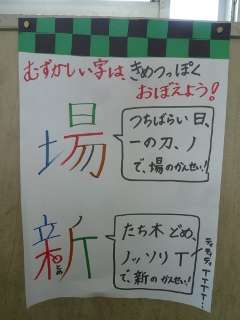 むずかしい字は、きめつっぽく
おぼえよう！
場
つちばらい日、
一の刀、ノ
で、場のかんせい！
新
とめ
たち木 どめ、
ノッソリT
で、新のかんせい！
ティティティTTTT…